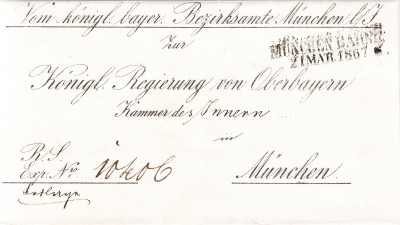 Vom königl. bayer. Bezirksamte München l/I
MÜNCHEN BAHNH.
21 MAR 1867
Zur
Königl. Regierung von Oberbayern
Kammer des Innern
in
R. S.
Exp. No 10406
München.